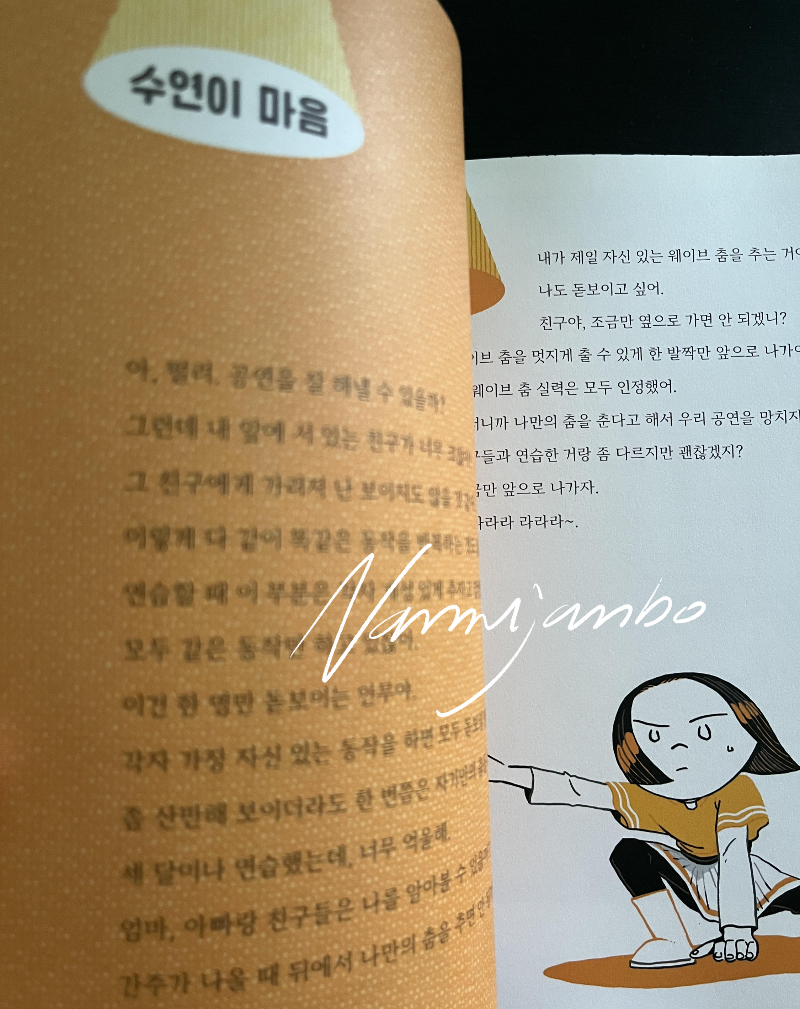 수연이 마음
아, 떨려. 공연을 잘 해낼 수 있을까?
그런데 내 앞에 서 있는 친구가 너무
그 친구에게 가려져 난 보이지도 않을
이렇게 다 같이 똑같은 동작을 반복하는
연습할 때 이 부분은 각자
모두 같은 동작만 하고 있잖아.
이건 한 명만 돋보이는 안무야.
각자 가장 자신 있는 동작을 하면 모두
좀 산만해 보이더라도 한 번쯤은 자기만의
세 달이나 연습했는데, 너무 억울해.
엄마, 아빠랑 친구들은 나를 알아볼 수
간주가 나올 때 뒤에서 나만의 춤을 추면
내가 제일 자신 있는 웨이브 춤을 추는
나도 돋보이고 싶어.
친구야, 조금만 옆으로 가면 안 되겠니?
춤을 멋지게 출 수 있게 한 발짝만 앞으로
웨이브 춤 실력은 모두 인정했어.
나만의 춤을 춘다고 해서 우리 공연을
연습한 거랑 좀 다르지만 괜찮겠지?
앞으로 나가자.
라라라~.
Nammijanbo